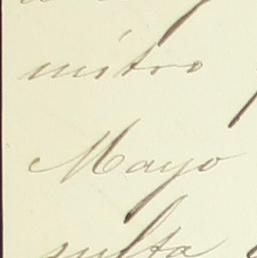 nistro
Mayo
sulta